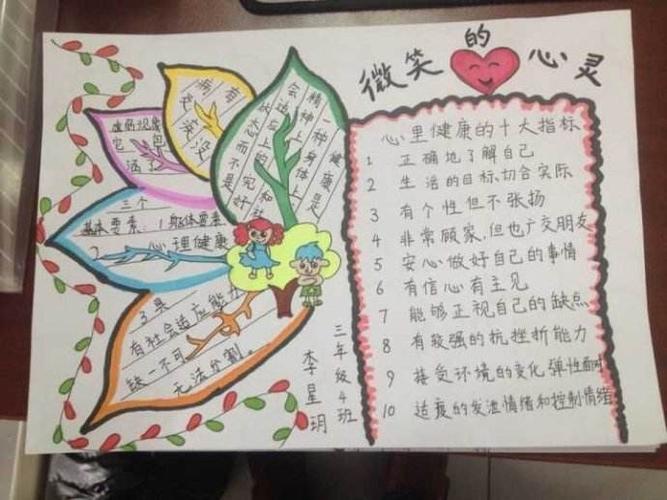 微笑的心灵
心里健康的十大指标
1 正确地了解自己
2 生活的目标,切合实际
3 有个性但不张扬
4 非常顾家,但也广交朋友
5 安心做好自己的事情
6 有信心有主见
7 能够正视自己的缺点
8 有较强的抗挫折能力
9 接受环境的变化 弹性面对
10 适度的发泄情绪和控制情绪
健康是
一种身体上
精神上和社
会适应上的完好
状态而不是
没有
疾病
虚弱现象
它包
涵
三个
基本要素:1身体要素
2 心理健康
3具
有社会适应能力
缺一不可
无法分割。
三年级4班
李星玥